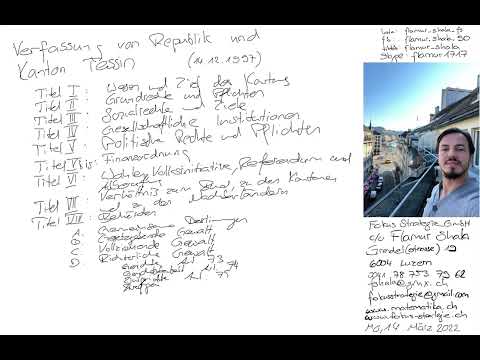 Verfassung von Republik und
Kanton Tessin (14.12.1997)
Titel I : Wesen und Ziel des Kantons
Titel II : Grundrechte und Pflichten
Titel III : Sozialrechte und Ziele
Titel IV : Gesellschaftliche Institutionen
Titel V : Politische Rechte und Pflichten
Titel Vbis: Finanzordnung
Titel VI : Wahlen, Volksinitiative, Referendum und
Verhältnis zum Bund, zu den Kantonen
Titel VII : und zu den Nachbarländern
Titel VIII : Behörden
A. Gemeinsame
B. Gesetzgebende Gewalt
C. Vollziehende Gewalt
D Richterliche Gewalt
Art. 73
Art. 74
Art. 75
Insta: flamur_shala_fs
fb : flamur.shala.90
flamur_shala
Skype: flamur1717
Fokus Strategie GmbH
c/o Flamur Shala
Grendel(strasse) 19
6004 Luzern
0041 78 753 79 62
fshala@gmx.ch
fokusstrategie@gmail.com
www.matematika.ch
www.fokus-strategie.ch
Mo, 14 März 2022